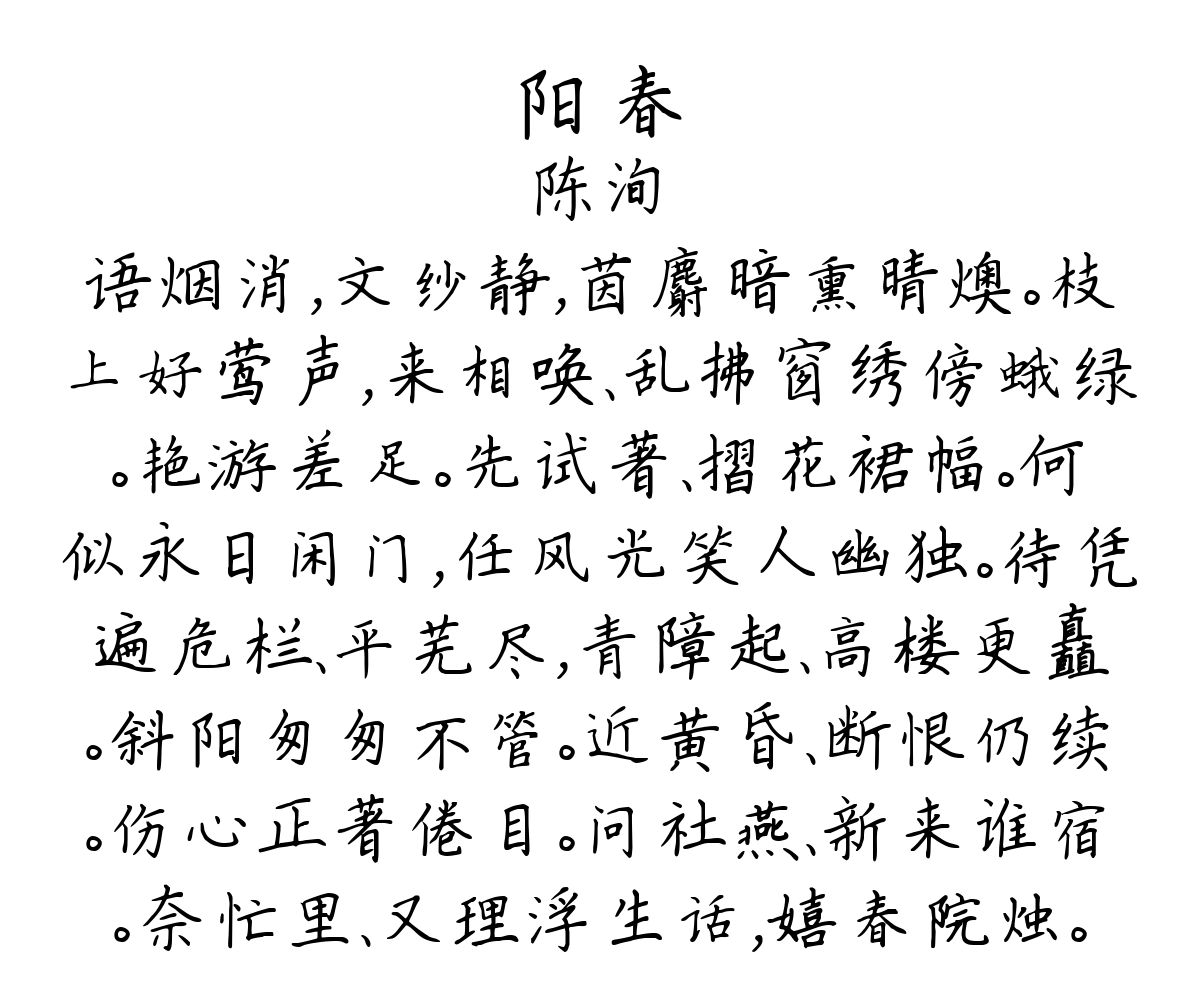 阳春
陈洵
语烟消,文纱静,茵麝暗熏晴燠。枝
上好莺声,来相唤、乱拂窗绣傍蛾绿
。艳游差足。先试著、摺花裙幅。何
似永日闲门,任风光笑人幽独。待凭
遍危栏、平芜尽,青障起、高楼更矗
。斜阳匆匆不管。近黄昏、断恨仍续
。伤心正著倦目。问社燕、新来谁宿
。奈忙里、又理浮生话,嬉春院烛。